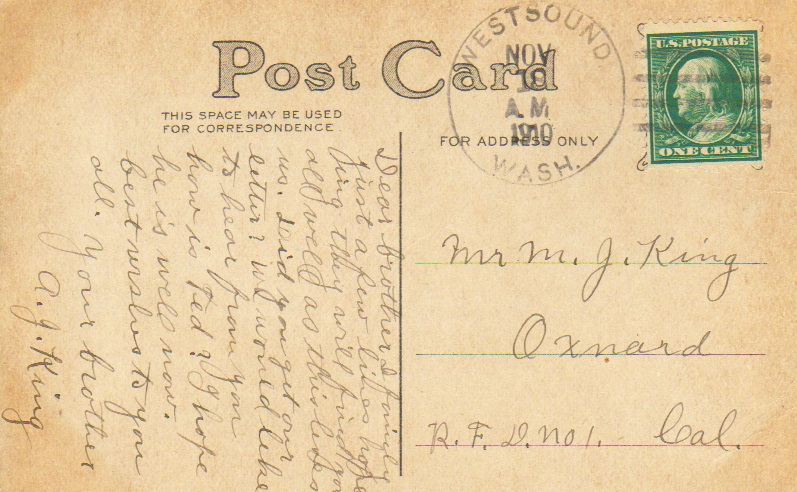 Post Card
THIS SPACE MAY BE USED
FOR CORRESPONDENCE
FOR ADDRESS ONLY
WESTSOUND
NOV
A.M
1910
WASH.
U.S. POSTAGE
ONE CENT
Dear brother & family
Just a few lines hope
ing they will find you
all well as this leaves
us. did you get our
letter? we would like
to hear from you
how is Ted? I hope
he is well now.
best wishes to you
all. Your brother
A. J. King
Mr M. J. King
Oxnard
R. F. D. No 1. Cal.